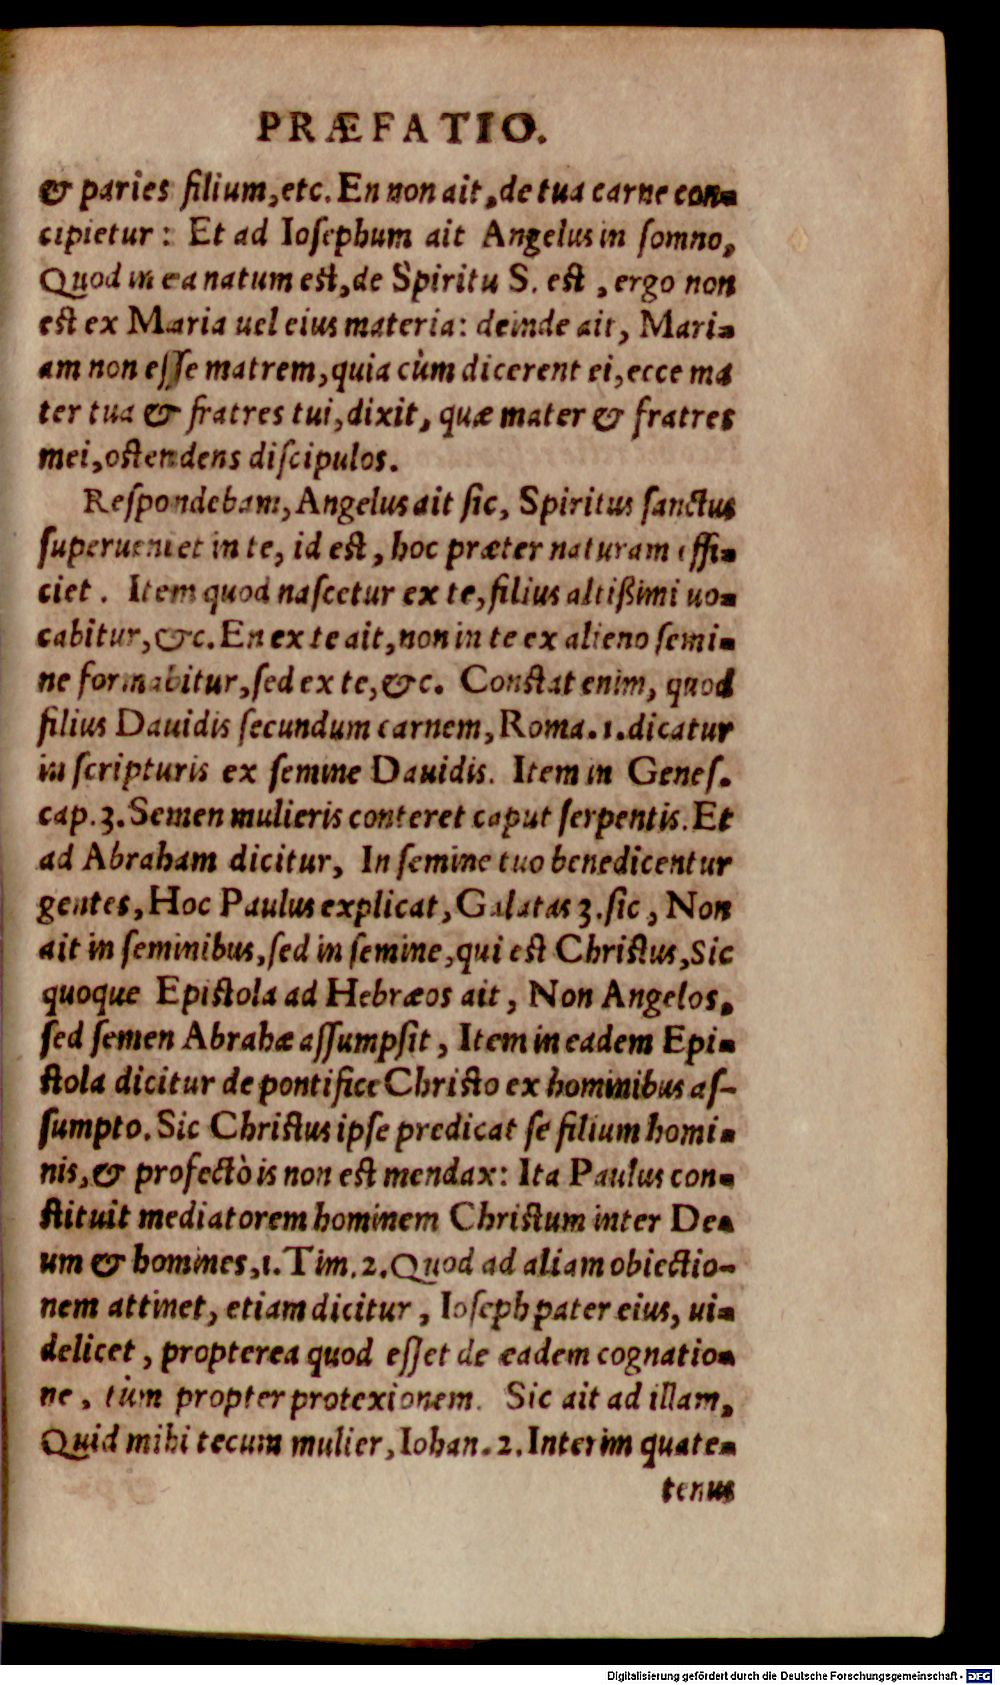 PRÆFATIO.
& paries filium,etc. En non ait, de tua carne con-
cipietur: Et ad Ioſephum ait Angelus in ſomno,
Quod in ea natum eſt, de Spiritu S. eſt, ergo non
eſt ex Maria uel eius materia: deinde ait, Mari-
am non eſſe matrem, quia cùm dicerent ei, ecce ma
ter tua & fratres tui, dixit, quæ mater & fratres
mei, oſtendens diſcipulos.
Reſpondebam, Angelus ait ſic, Spiritus ſanctus
ſuperueniet in te, id eſt, hoc præter naturam effi-
ciet. Item quod naſcetur ex te, filius altißimi uo-
cabitur, &c. En ex te ait, non in te ex alieno ſemi-
ne formabitur, ſed ex te, &c. Conſtat enim, quod
filius Dauidis ſecundum carnem, Roma.1.dicatur
in ſcripturis ex ſemine Dauidis. Item in Geneſ.
cap.3. Semen mulieris conteret caput ſerpentis. Et
ad Abraham dicitur, In ſemine tuo benedicentur
gentes, Hoc Paulus explicat, Galatas 3. ſic, Non
ait in ſeminibus, ſed in ſemine, qui eſt Chriſtus, Sic
quoque Epiſtola ad Hebræos ait, Non Angelos,
ſed ſemen Abrahæ aſſumpſit, Item in eadem Epi-
ſtola dicitur de pontifice Chriſto ex hominibus aſ-
ſumpto. Sic Chriſtus ipſe predicat ſe filium homi-
nis, & profectò is non eſt mendax: Ita Paulus con-
ſtituit mediatorem hominem Chriſtum inter De-
um & homines, 1. Tim. 2. Quod ad aliam obiectio-
nem attinet, etiam dicitur, Ioſeph pater eius, ui-
delicet, propterea quod eſſet de eadem cognatio-
ne, tùm propter protexionem. Sic ait ad illam,
Quid mihi tecum mulier, Iohan. 2. Interim quate-
tenus
Digitalisierung gefördert durch die Deutsche Forschungsgemeinschaft - DFG